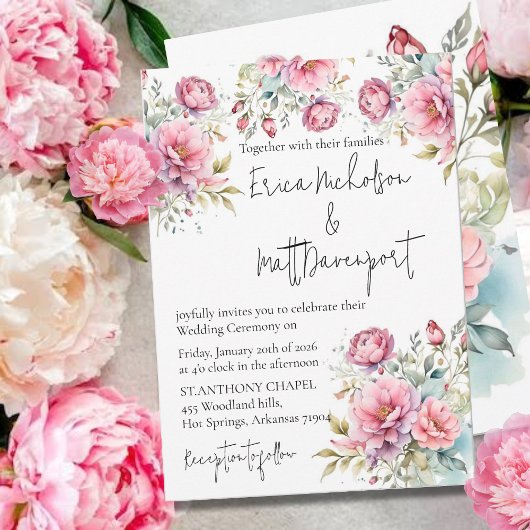 Together with their families
Erica Nicholson
&
Matt Davenport
joyfully invites you to celebrate their
Wedding Ceremony on
Friday, January 20th of 2026
at 4'o clock in the afternoon
ST.ANTHONY CHAPEL
455 Woodland hills,
Hot Springs, Arkansas 71904
Reception to follow